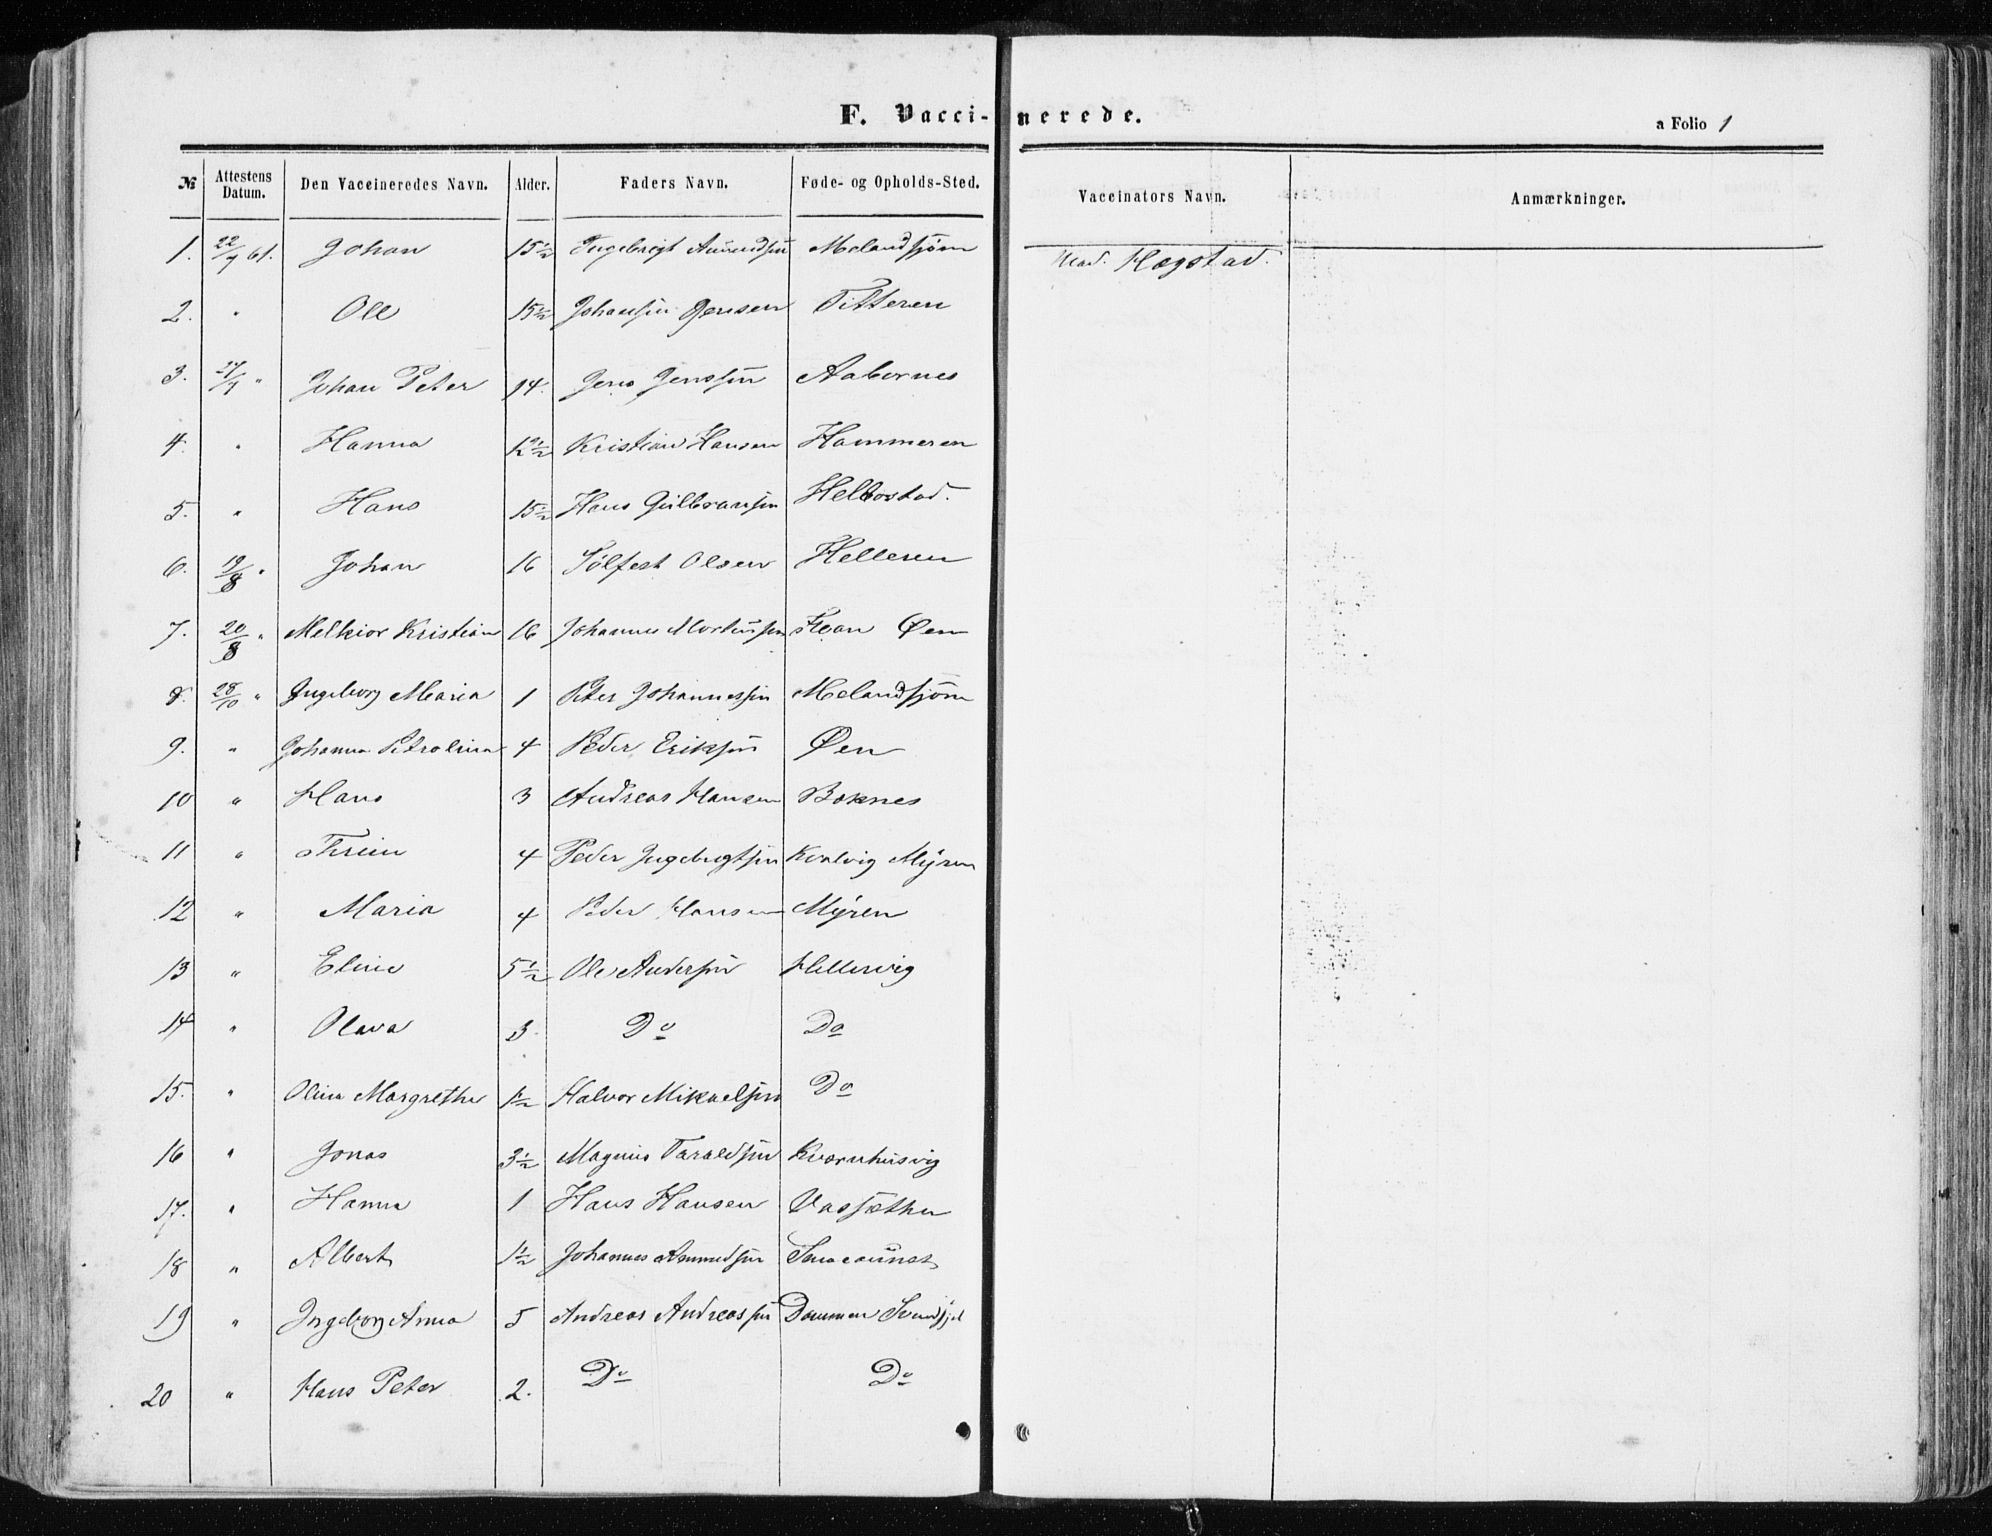 F. Vaccinerede.
a Folio 1
№ Attestens Datum. Den Vaccineredes Navn. Alder. Faders Navn. Føde- og Opholds-Sted. Vaccinators Navn. Anmærkninger.
1. 22/7 61. Johan 15½ Ingebrigt Amundsøn Melandsjøen Hagstad.
2. " Ole 15½ Johansøn Jensen Titteren
3. 27/7 " Johan Peter 14. Jens Jenssøn Aabornes
4. " Hanna 12½ Kristian Hansen Hammeren
5. " Hans 15½ Hans Gulbransøn Helbostad.
6. 19/8 " Johan 16 Sølfest Olsen Helleren
7. 20/8 " Melkior Kristian 16 Johannes Mortensøn Øen
8. 28/10 " Ingeborg Maria 1 Peter Johannessøn Melandsjøen
9. " Johanna Petrolina 4 Peder Eriksøn Øen
10 " Hans 3 Andreas Hansen Boknes
11 " 4 Peder Ingebrigtsøn Kvalvig Myren
12 " Maria 4 Peder Hansen Myren
13 " Eline 5½ Ole Andersøn Hellesvig
14 " Olava 3. Do Do
15. " Olina Margrethe 1½ Halvor Mikaelsøn Do
16 " Jonas 3½ Magnus Taraldsøn Kvernhusvig
17. " Hanna 1 Hans Hansen Vassæther
18 " Albert 1½ Johannes Amundsøn
19 " Ingeborg Anna 5 Andreas Andreassøn Dammen
20 " Hans Peter 2. Do Do